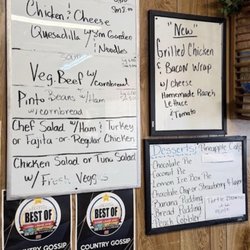 Chicken & Cheese
Quesadilla w/
Garden
Noodles
Veg. Beef w/cornbread
Pinto Beans w/Ham
w/cornbread
Chef Salad w/Ham & Turkey
or Fajita or Regular Chicken
Chicken Salad or Tuna Salad
w/ Fresh Veggis
"New"
Grilled Chicken
& Bacon Wrap
w/ Cheese
Homemade Ranch
Lettuce
& Tomato
Desserts:
Pineapple Cake
Chocolate Pie
Coconut Pie
Lemon Ice Box Pie
Chocolate Chip or Strawberry
Banana Pudding
Bread Pudding
Peach Cobbler
BEST OF
COUNTRY GOSSIP
BEST OF
COUNTRY GOSSIP